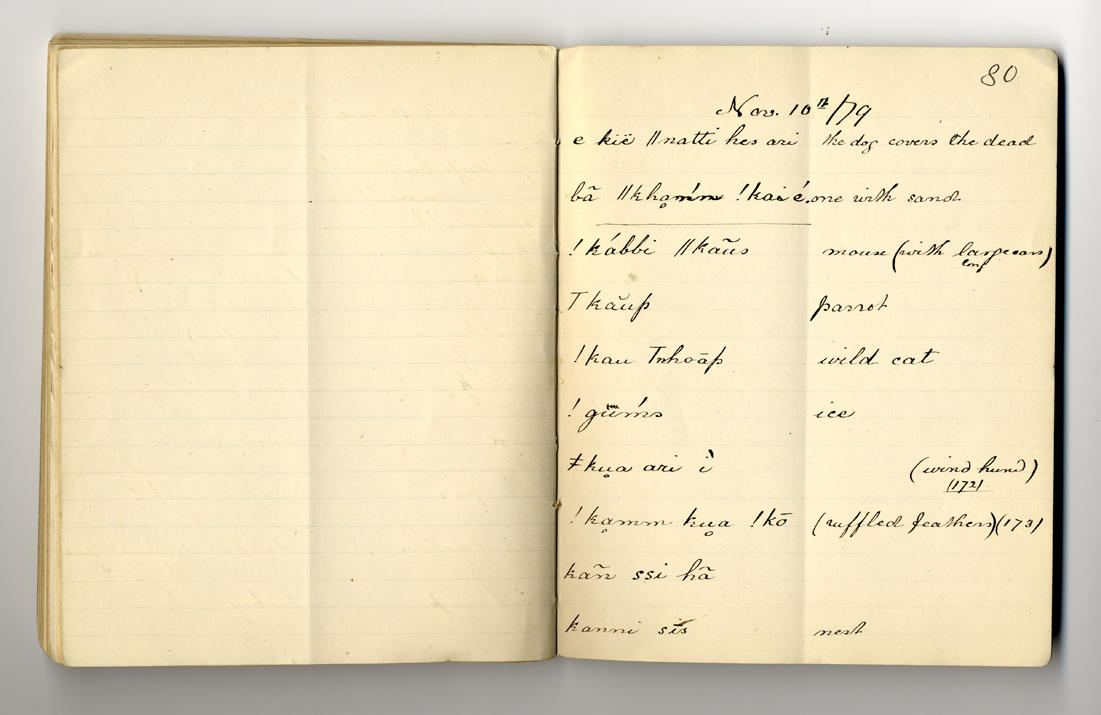 80
Nov. 10th/79
e kië ǁnatti hes ari the dog covers the dead
bã ǁkhạḿm !kai é. one with sand
!kábbi ǁkãũs mouse (with large ears)
long
Tkãŭp parrot
!kau Tnhoāp wild cat
!gūḿs ice
ǂkụa ari ì (wind hund)
(172)
!kạmm kụa !kō (ruffled feathers) (173)
kañ ssi hã
kanni sis nest